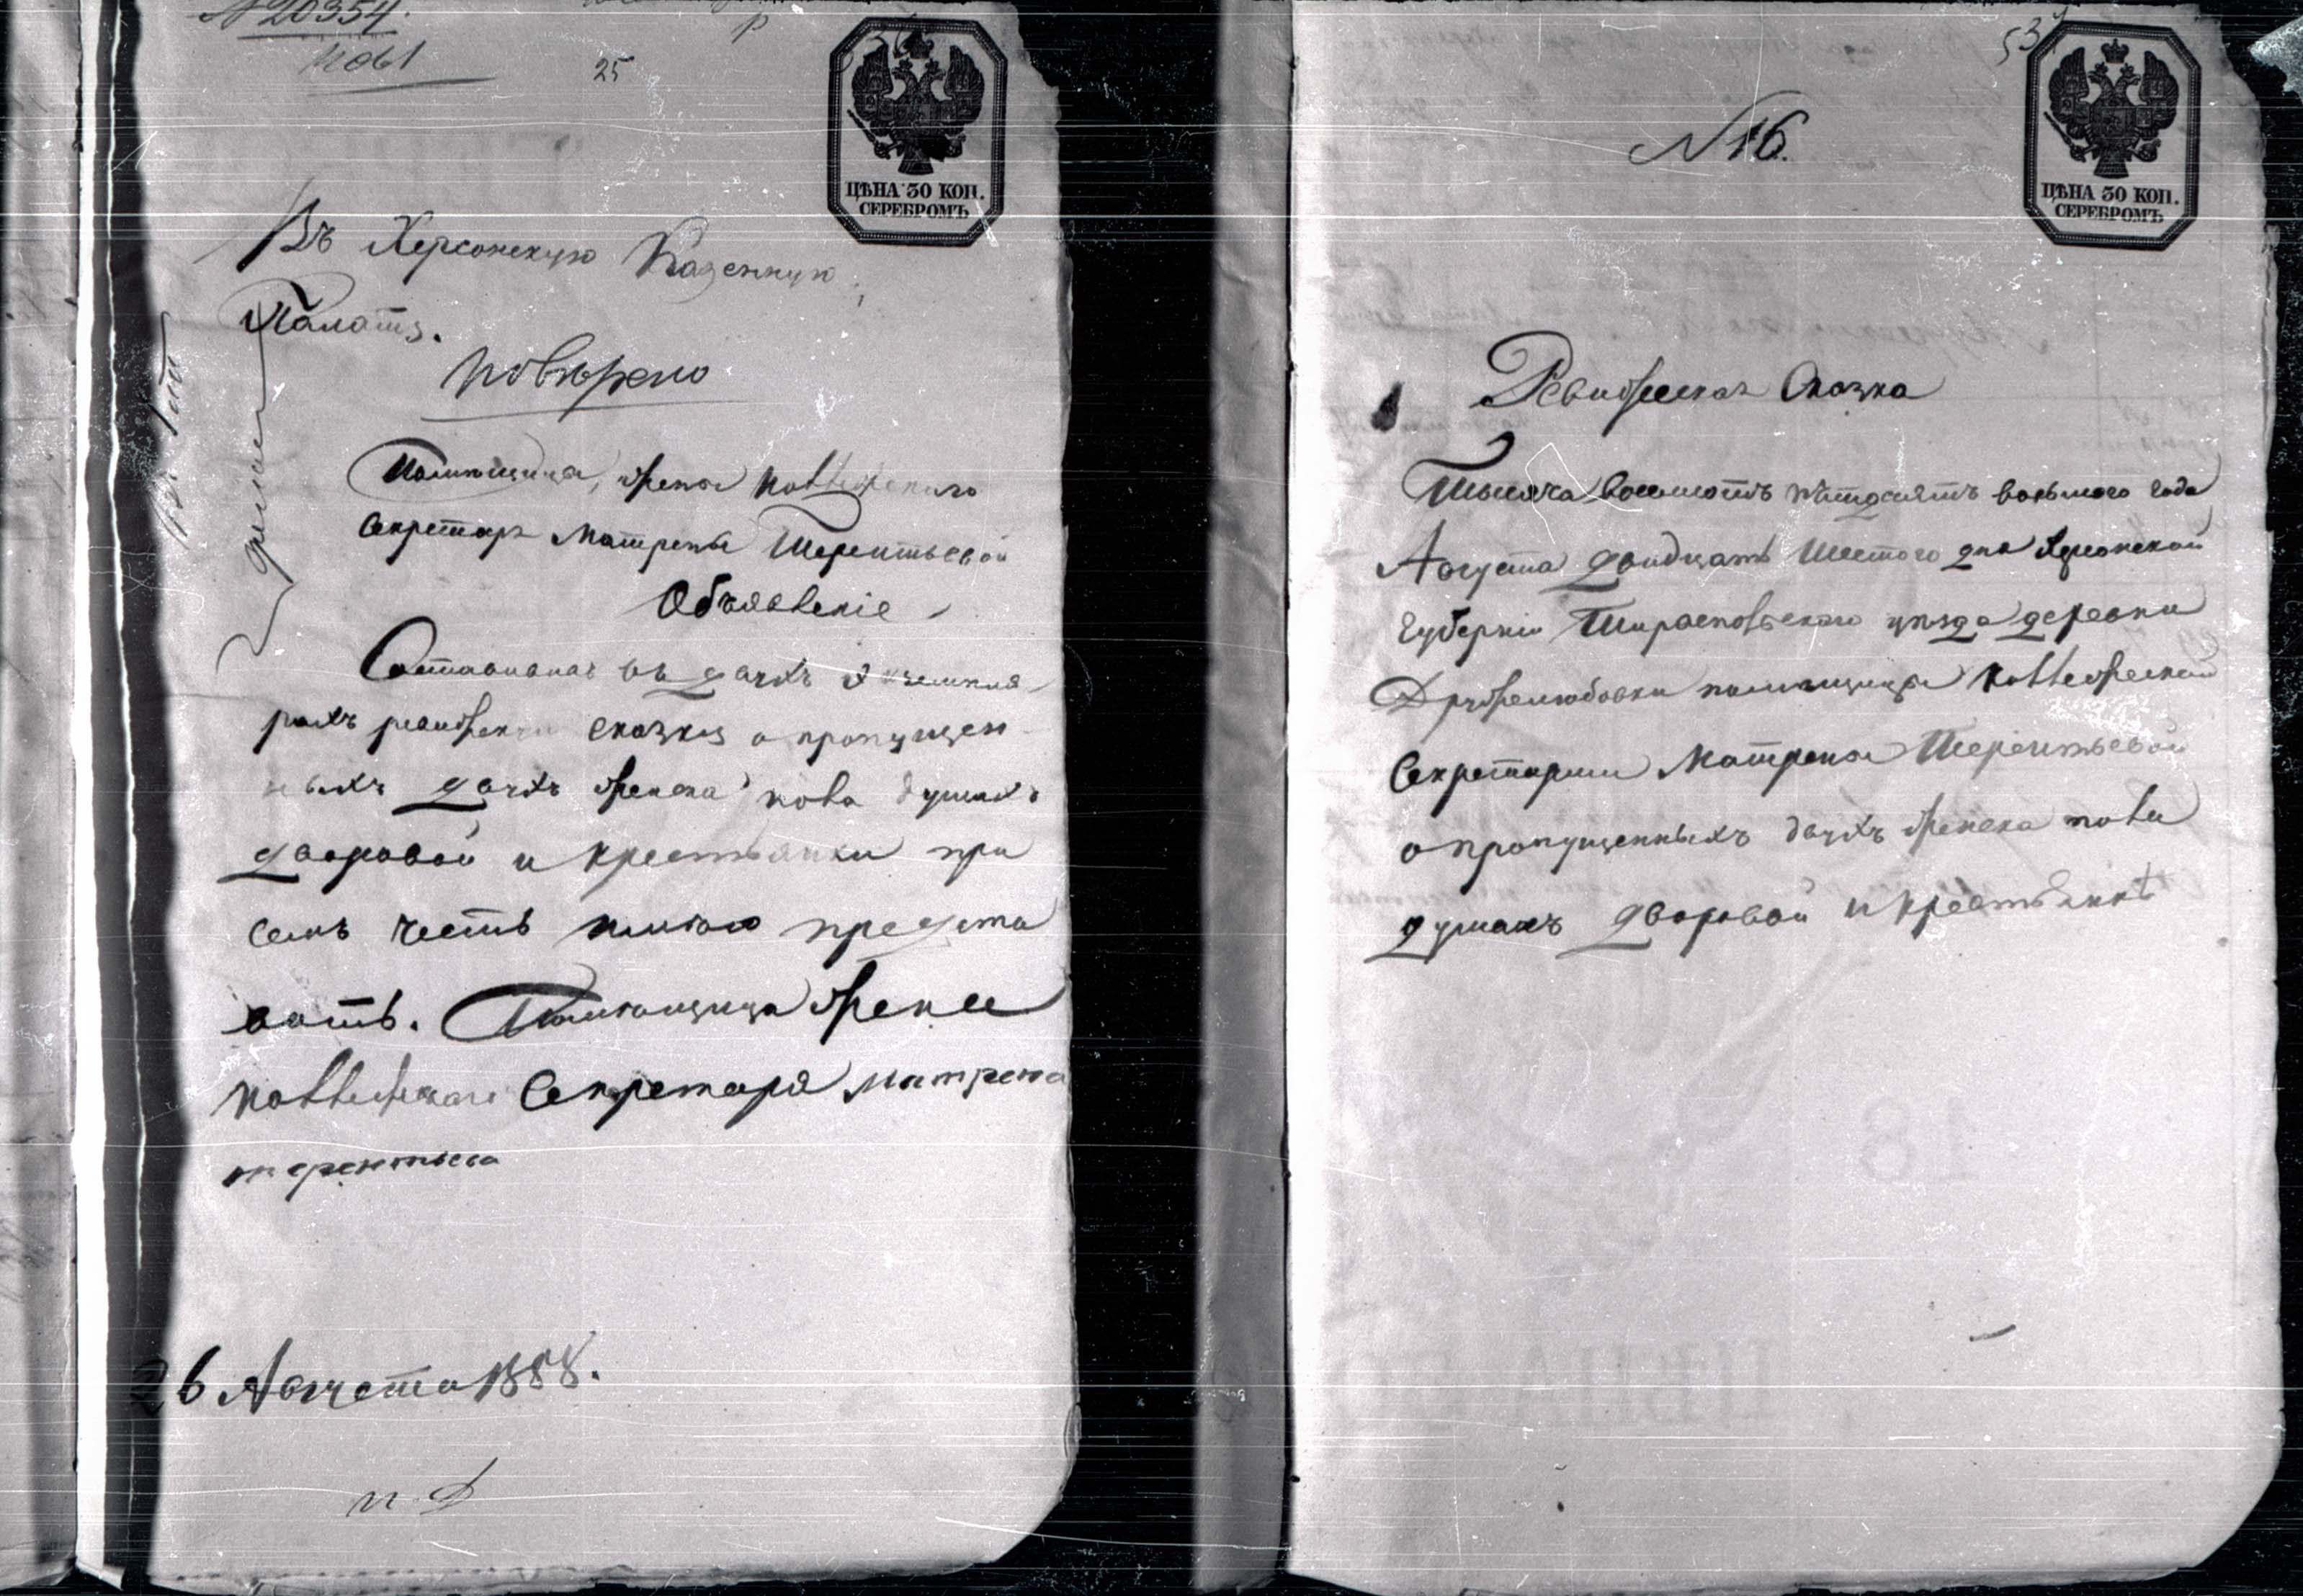 № 20354.
25
ЦѢНА 30 КОП.
СЕРЕБРОМЪ
Въ Херсонскую Казенную
Палату.
повѣрено
Помѣщица, жены Коллежскаго
Секретаря Матрены Терентьевой
Объявленіе
Составивъ въ двухъ экземпля
рахъ ревизскую сказку о пропущен
ныхъ двухъ женска пола душахъ
дворовой и крестьянки при
семъ честь имѣю предста
вить. Помѣщица жена
Коллежскаго Секретаря Матрена
терентьева
26 Августа 1858.
537
№ 16.
ЦѢНА 30 КОП.
СЕРЕБРОМЪ
Ревизская Сказка
Тысяча восемьсотъ пятдесятъ восьмого года
Августа двадцать Шестого дня Херсонской
Губерніи Тираспольскаго уѣзда деревни
Дружелюбовки помѣщицы Коллежской
Секретарши Матрены Терентьевой
о пропущенныхъ двухъ женска пола
душахъ дворовой и крестьянкѣ